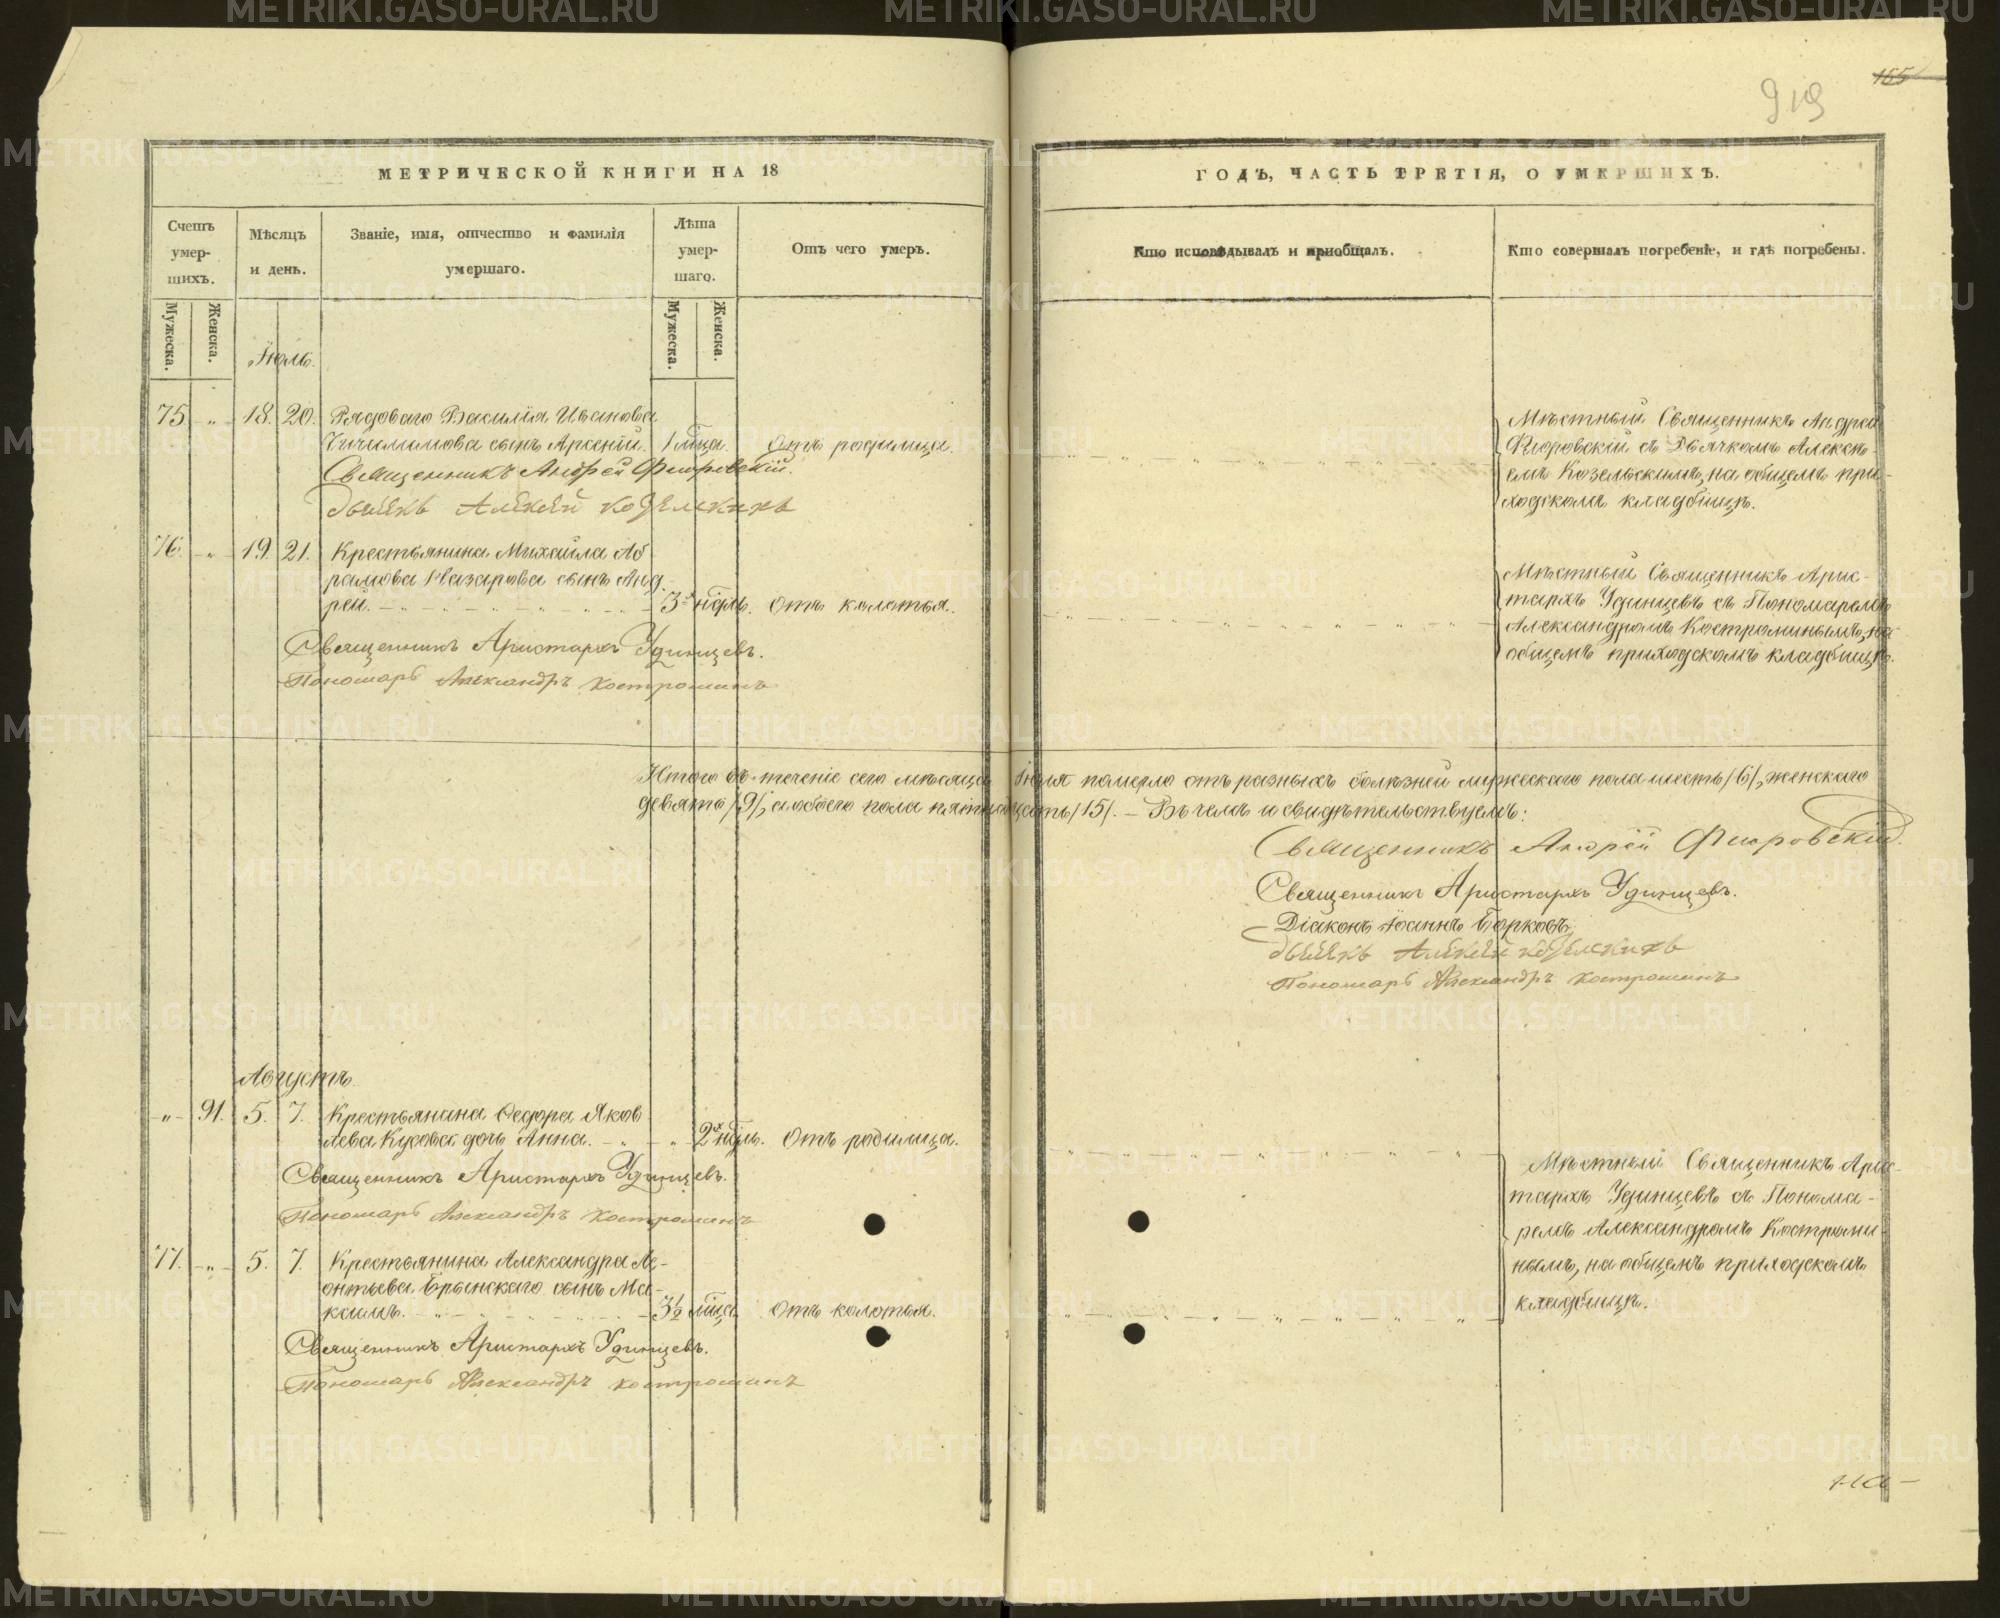 МЕТРИЧЕСКОЙ КНИГИ НА 18
Счетъ умершихъ.
Мужеска.
Женска.
Мѣсяцъ и день.
Званіе, имя, отчество и фамилія умершаго.
Лѣта умершаго.
Мужеска.
Женска.
Отъ чего умеръ.
Іюль.
75 " 18. 20. Рядоваго Василія Иванова
сынъ Арсеній. 1 мѣца. отъ родимца.
Священникъ Андрей Флоровскій.
дьячекъ Алексѣй козельскихъ
76. " 19. 21. Крестьянина Михаила Аб
рамова Назарова сынъ Анд
рей. 3х нѣдль. отъ колотья.
Священникъ Аристархъ Удинцевъ.
Пономарь Александръ Костроминъ
Итого въ теченіе сего мѣсяца
девять /9/, а обоего пола пятнад
Августъ.
" 91. 5. 7. Крестьянина Ѳедора Яков
лева Кусова дочь Анна. " 2х нѣдль. Отъ родимца.
Священникъ Аристархъ Удинцевъ.
Пономарь Александръ Костроминъ
77. " 5. 7. Крестьянина Александра Ле-
онтьева Брынскаго сынъ Ма-
ксимъ. 3½ мѣца. отъ колотья.
Священникъ Аристархъ Удинцевъ.
Пономарь Александръ Костроминъ
155
919
ГОДЪ, ЧАСТЬ ТРЕТІЯ, О УМЕРШИХЪ.
Кто исповѣдывалъ и пріобщалъ.
Кто совершалъ погребеніе, и гдѣ погребены.
Мѣстный Священникъ Андрей
Флоровскій съ Дьячкомъ Алексѣ-
емъ Козельскимъ, на общемъ при-
ходскомъ кладбищѣ.
Мѣстный Священникъ Арис-
тархъ Удинцевъ съ Пономаремъ
Александромъ Костроминымъ, на
общемъ приходскомъ кладбищѣ.
Іюля померло отъ разныхъ болѣзней мужескаго пола шесть /6/, женскаго
цать /15/. – Въ чемъ и свидѣтельствуемъ:
Священникъ Андрей Флоровскій.
Священникъ Аристархъ Удинцевъ.
Діаконъ Іоаннъ Борковъ.
дьячекъ Алексѣй козельскихъ
Пономарь Александръ Костроминъ
Мѣстный Священникъ Арис-
тархъ Удинцевъ съ Понома-
ремъ Александромъ Костроми-
нымъ, на общемъ приходскомъ
кладбищѣ.
METRIKI.GASO-URAL.RU